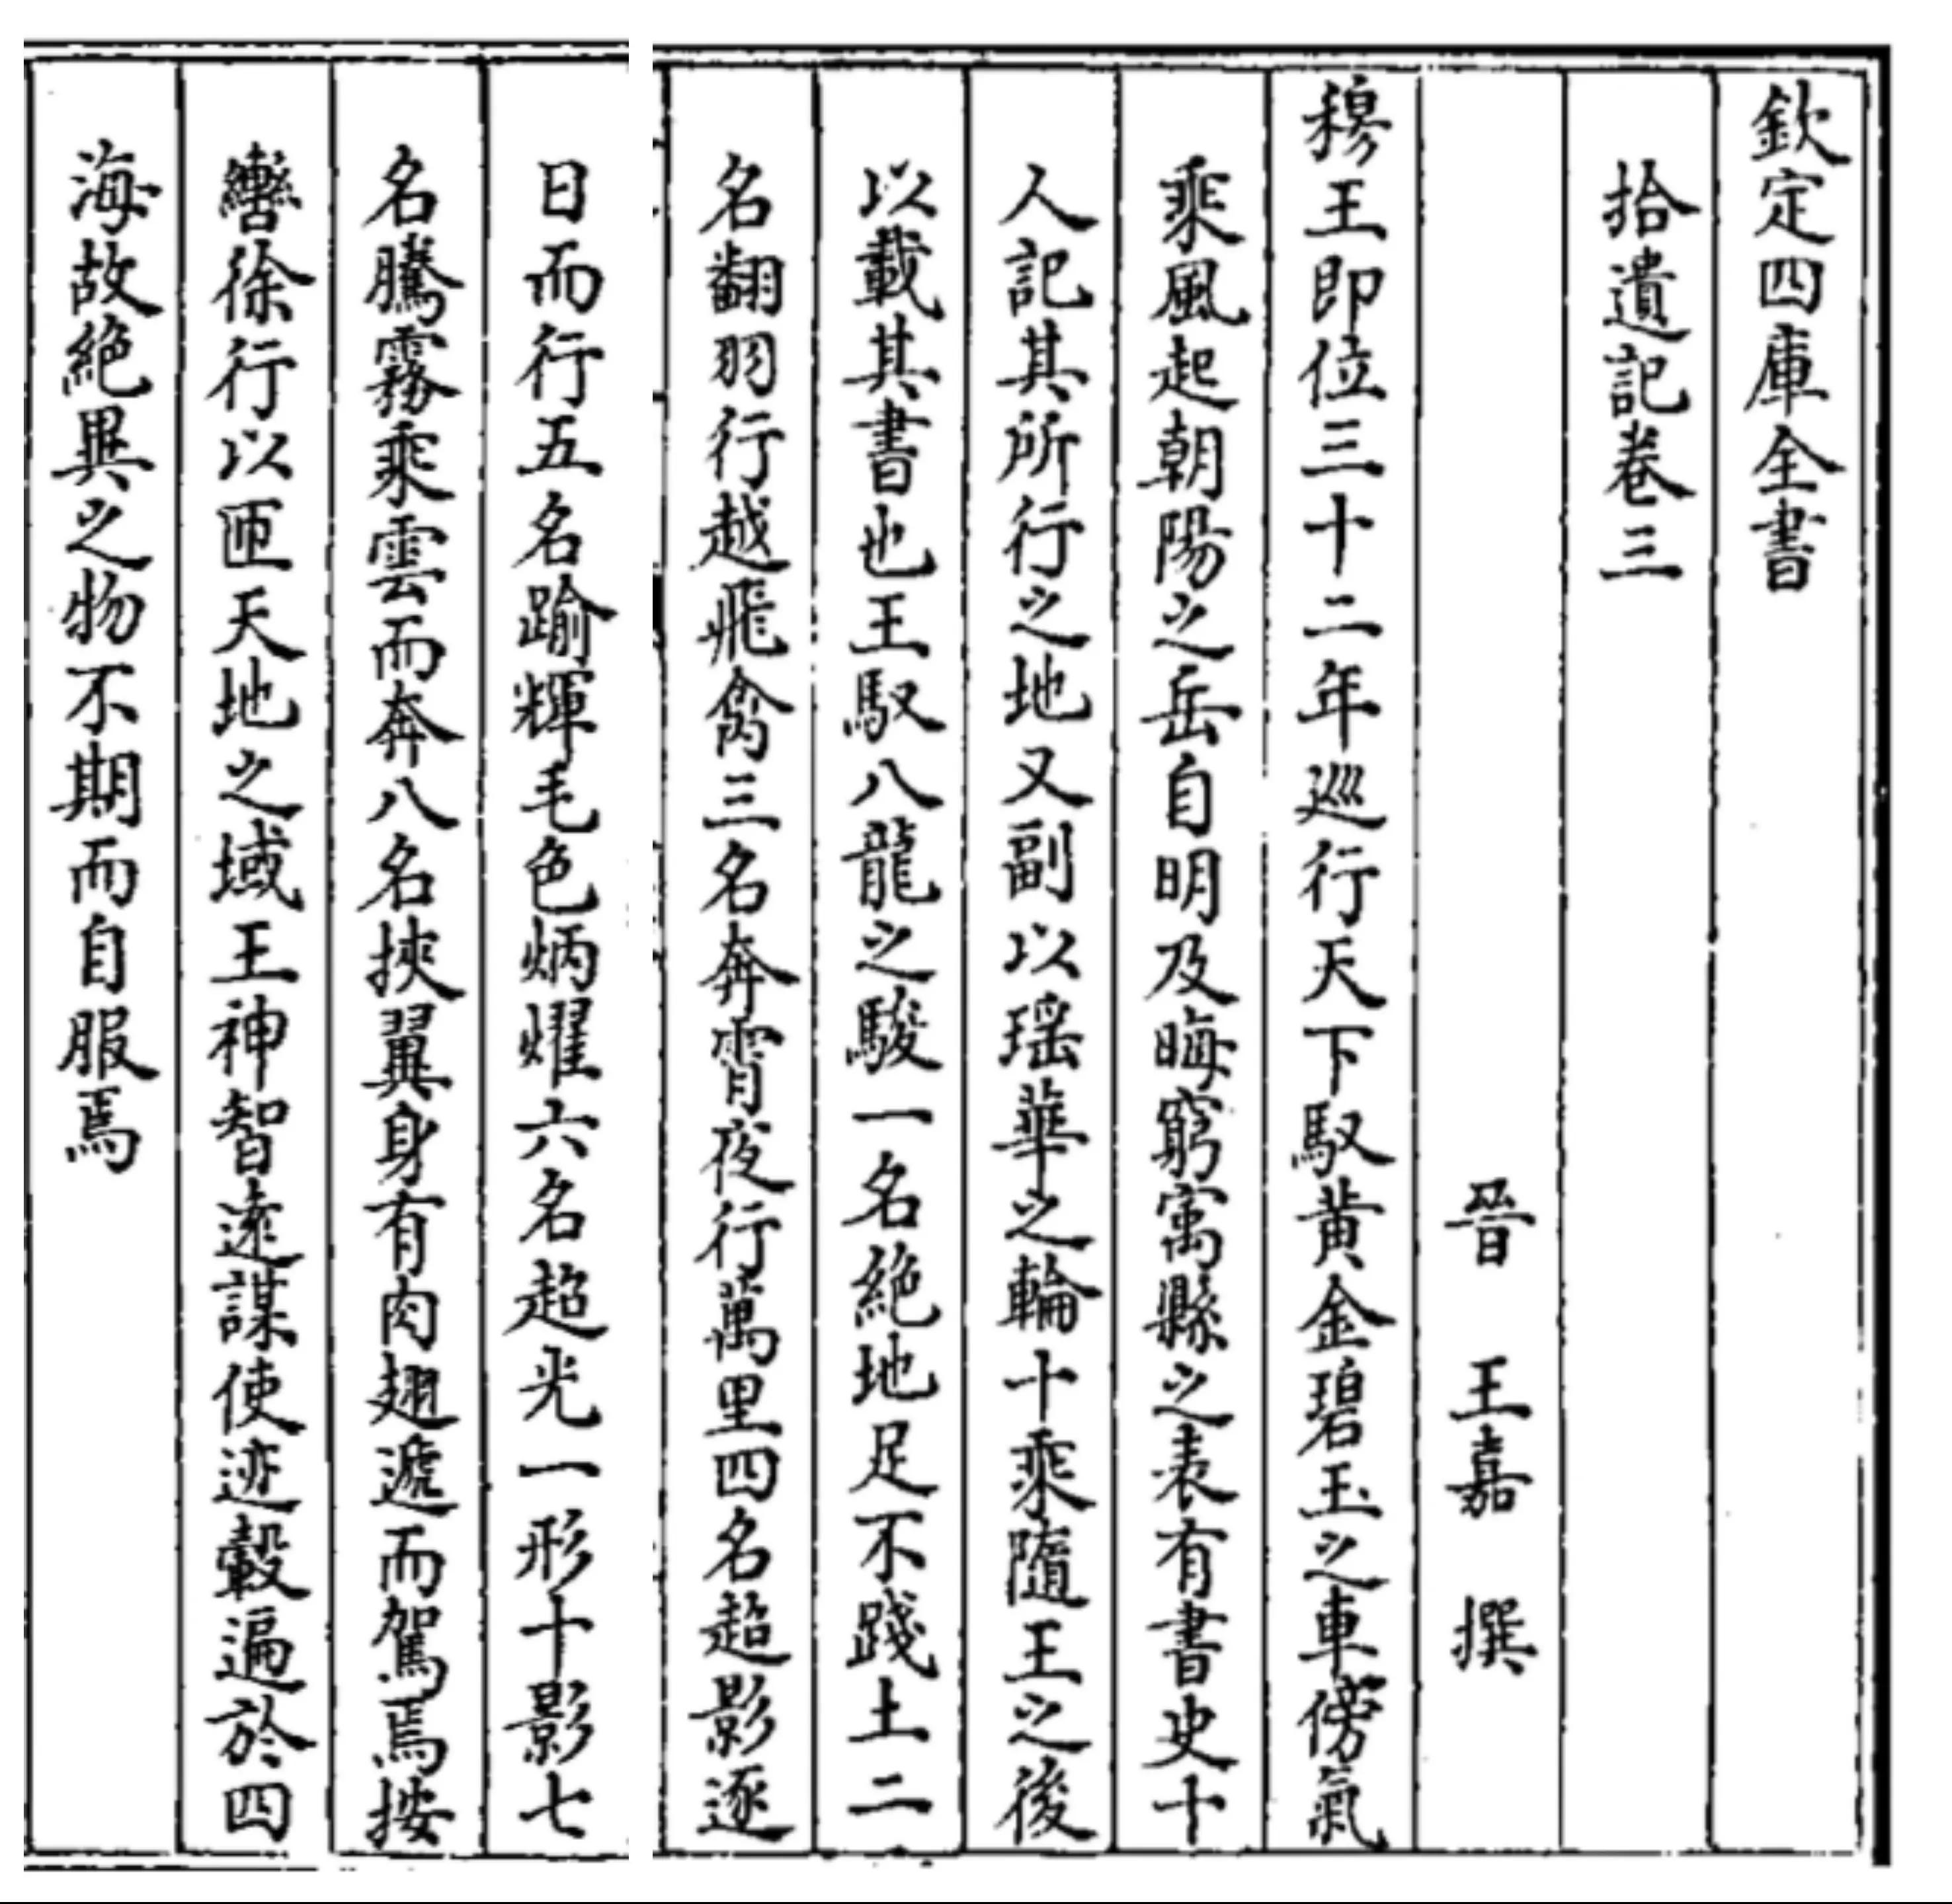 欽定四庫全書
拾遺記卷三
晉 王嘉 撰
穆王即位三十二年巡行天下馭黄金碧玉之車傍氣
乘風起朝陽之岳自明及晦窮寓縣之表有書史十
人記其所行之地又副以瑶華之輪十乘隨王之後
以載其書也王馭八龍之駿一名絶地足不踐土二
名翻羽行越飛禽三名奔霄夜行萬里四名超影逐
日而行五名踰輝毛色炳燿六名超光一形十影七
名騰霧乘雲而奔八名挾翼身有肉翅遞而駕焉按
轡徐行以匝天地之域王神智逺謀使迹轂遍於四
海故絶異之物不期而自服焉